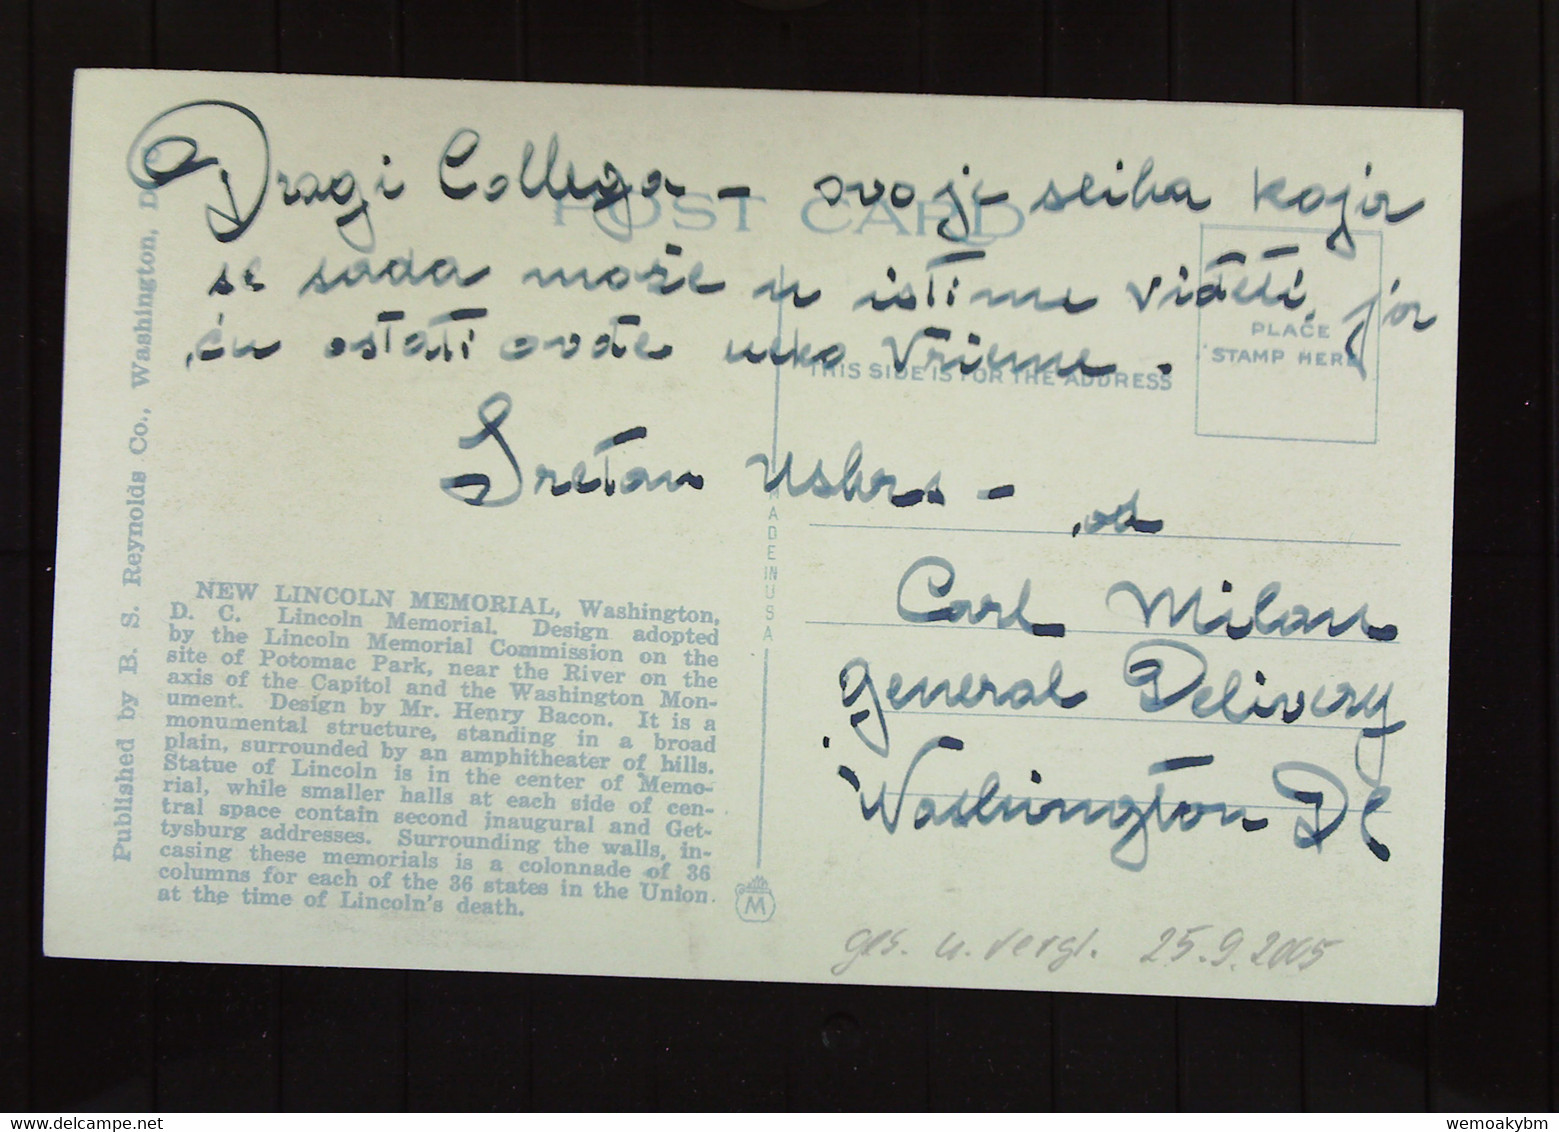 Dragi Collega – ovo je sliha koja
se sada može u istime videti, ja
ću ostati ovde neko vrieme.
Sretan Uskrs – od
Carl Milan
general Delivery
Washington DC
POST CARD
PLACE
STAMP HERE
THIS SIDE IS FOR THE ADDRESS
MADE IN USA
Published by B. S. Reynolds Co., Washington, D. C.
NEW LINCOLN MEMORIAL, Washington,
D. C. Lincoln Memorial. Design adopted
by the Lincoln Memorial Commission on the
site of Potomac Park, near the River on the
axis of the Capitol and the Washington Mon-
ument. Design by Mr. Henry Bacon. It is a
monumental structure, standing in a broad
plain, surrounded by an amphitheater of hills.
Statue of Lincoln is in the center of Memo-
rial, while smaller halls at each side of cen-
tral space contain second jnaugural and Get-
tysburg addresses. Surrounding the walls, in-
casing these memorials is a colonnade of 36
columns for each of the 36 states in the Union
at the time of Lincoln's death.
M
ges. u. vergl. 25.9.2005
wemoakybm